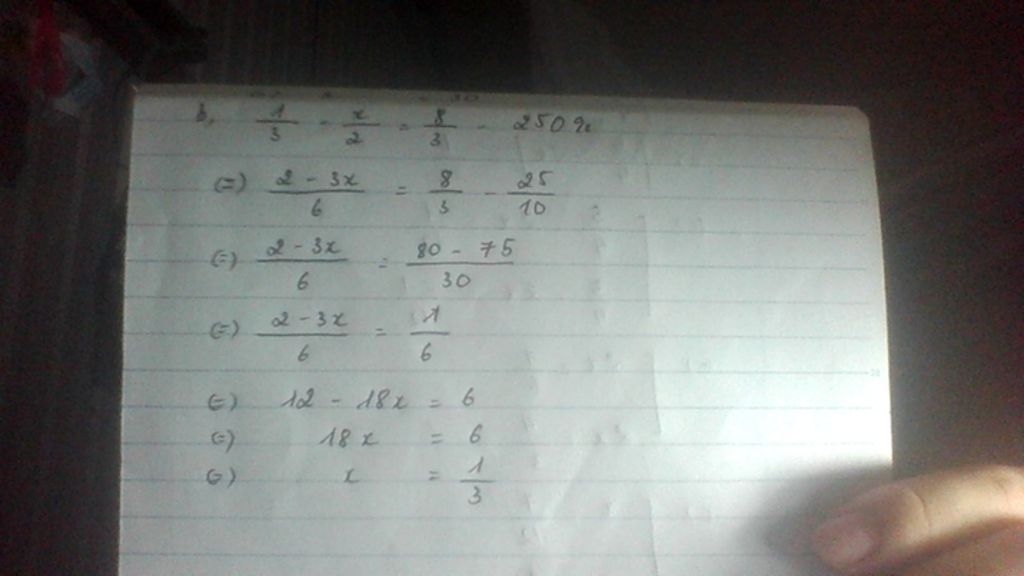 b, 1/3 - x/2 = 8/3 - 250%
(=) (2 - 3x)/6 = 8/3 - 25/10
(=) (2 - 3x)/6 = (80 - 75)/30
(=) (2 - 3x)/6 = 1/6
(=) 12 - 18x = 6
(=) 18x = 6
(=) x = 1/3